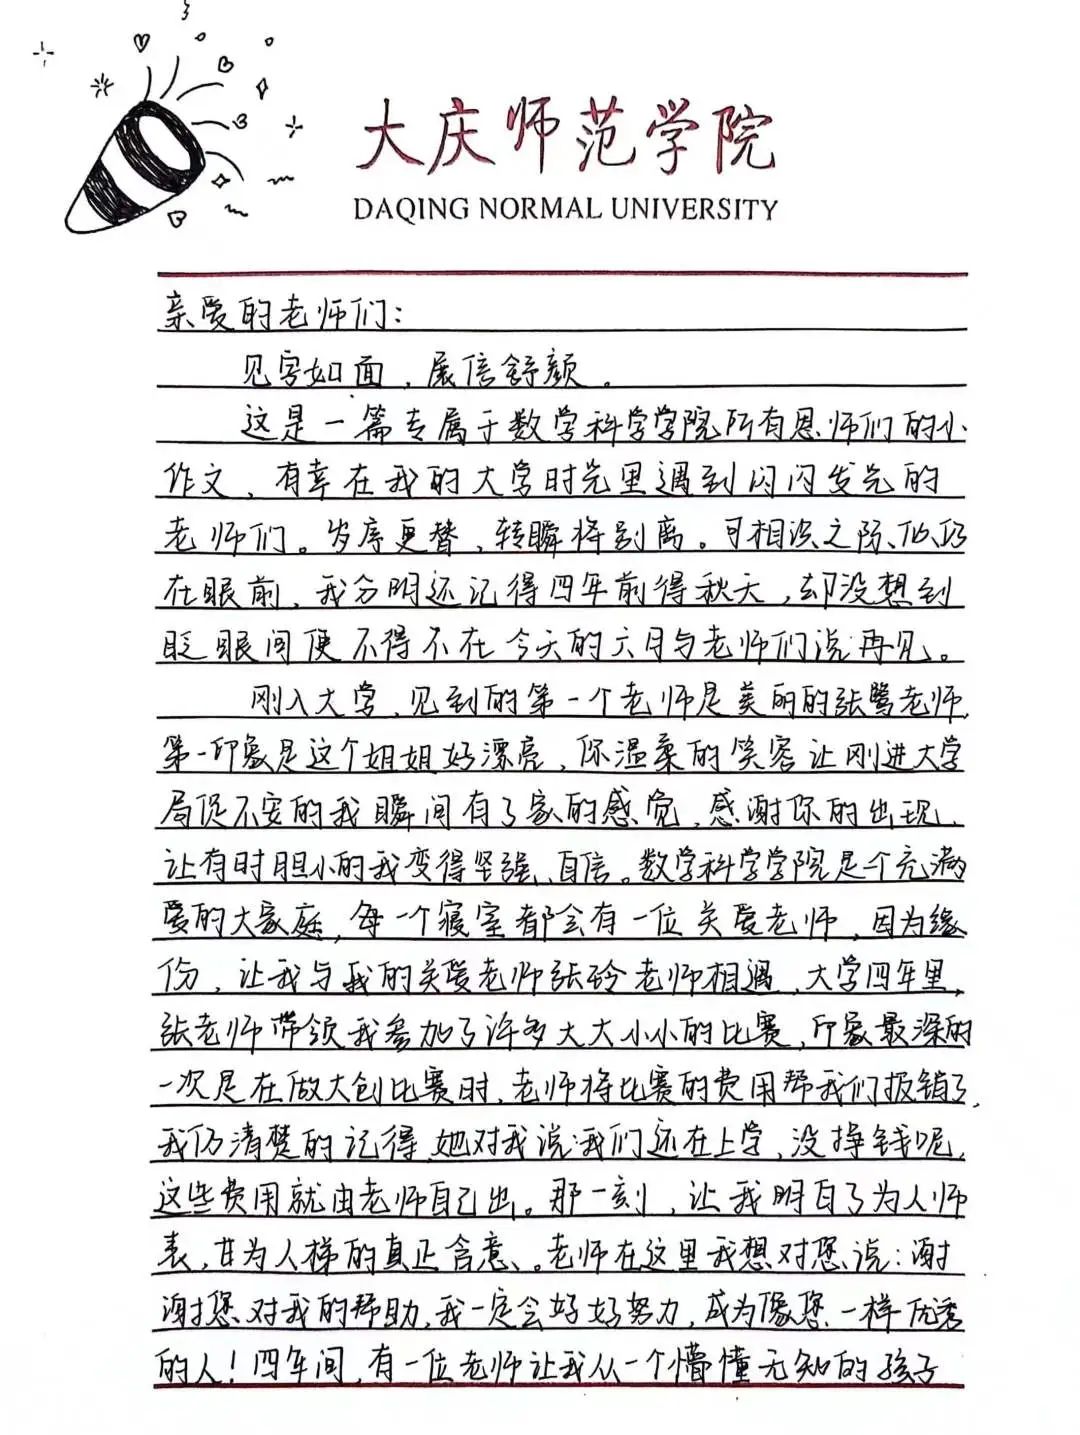 大庆师范学院
DAQING NORMAL UNIVERSITY
亲爱的老师们：
见字如面，展信舒颜。
这是一篇专属于数学科学学院所有恩师们的小
作文，有幸在我的大学时光里遇到闪闪发光的
老师们。岁序更替，转瞬将别离。可相识之际、仍
在眼前，我分明还记得四年前得秋天，却没想到
眨眼间便不得不在今天的六月与老师们说再见。
刚入大学，见到的第一个老师是美丽的张鹭老师，
第一印象是这个姐姐好漂亮，你温柔的笑容让刚进大学
局促不安的我瞬间有了家的感觉，感谢你的出现，
让有时胆小的我变得坚强、自信。数学科学学院是个充满
爱的大家庭，每一个寝室都会有一位关爱老师，因为缘
份，让我与我的关爱老师张玲老师相遇，大学四年里，
张老师带领我参加了许多大大小小的比赛，印象最深的
一次是在做大创比赛时，老师将比赛的费用帮我们报销了，
我仍清楚的记得她对我说：我们还在上学，没挣钱呢，
这些费用就由老师自己出。那一刻，让我明白了为人师
表，甘为人梯的真正含意。老师在这里我想对您说：谢
谢您对我的帮助，我一定会好好努力，成为像您一样优秀
的人！四年间，有一位老师让我从一个懵懂无知的孩子